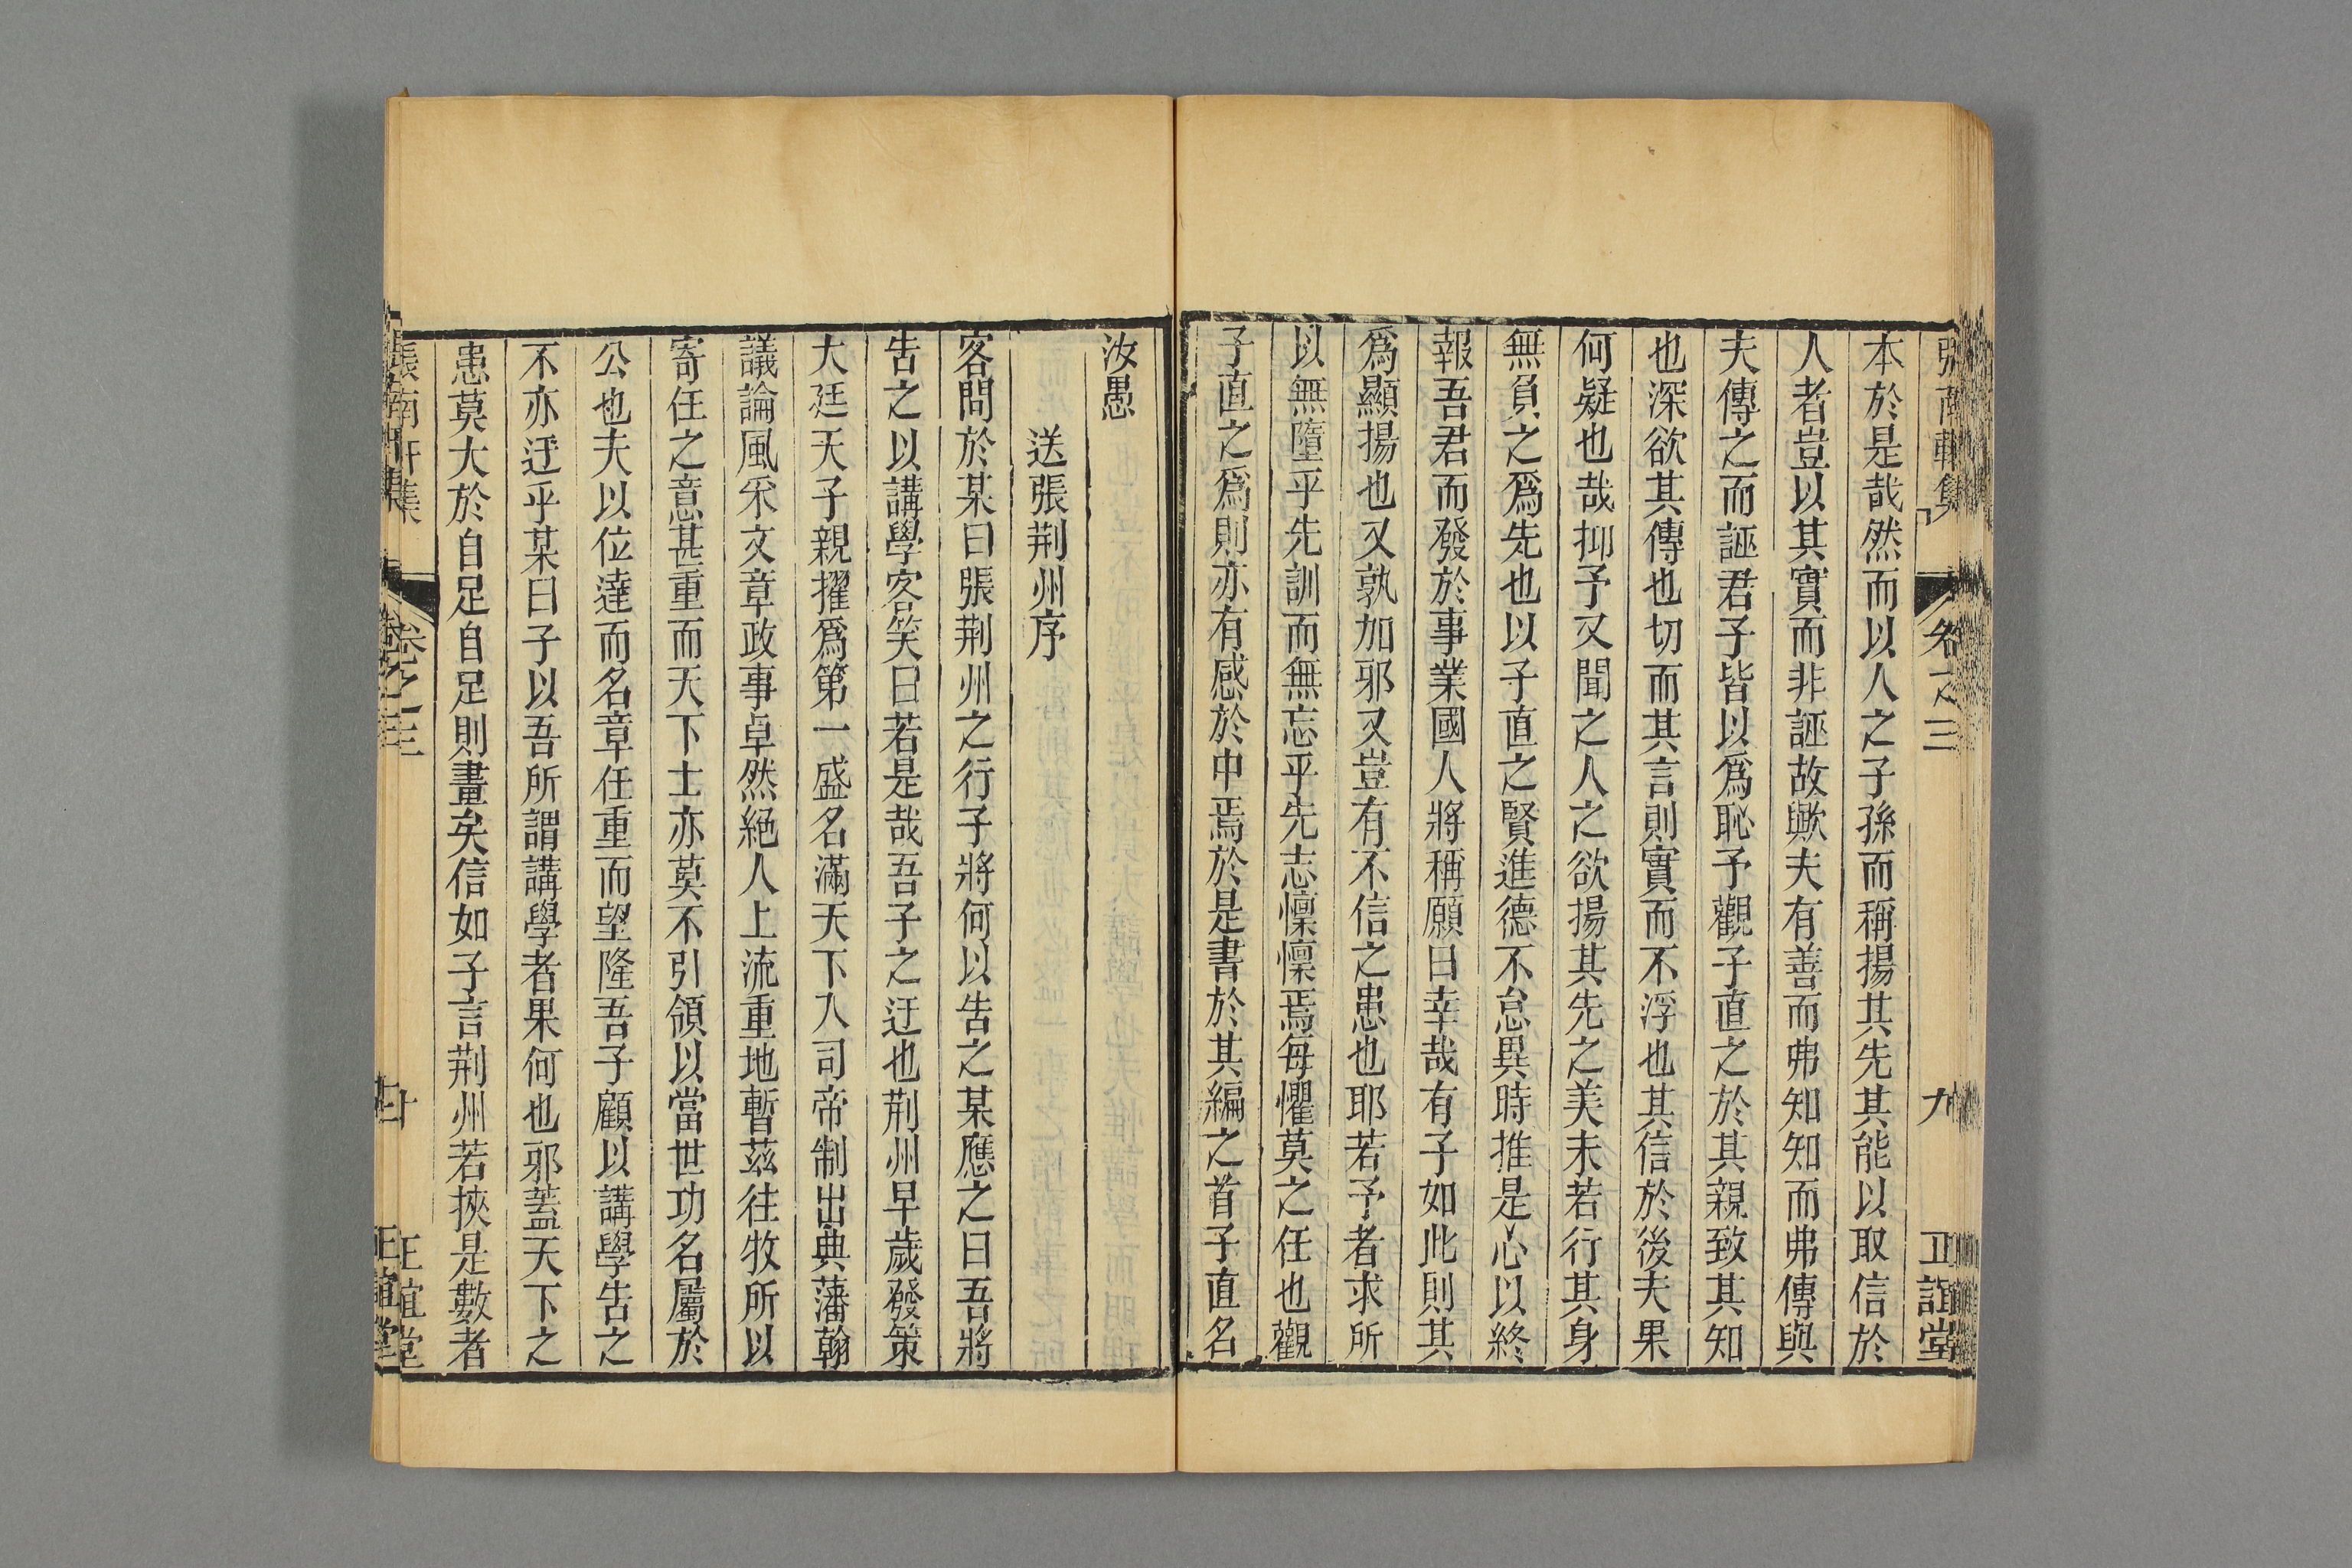 張南軒集 卷之三 九 正誼堂
本於是哉然而以人之子孫而稱揚其先其能以取信於
人者豈以其實而非誣故歟夫有善而弗知知而弗傳與
夫傳之而誣君子皆以爲恥予觀子直之於其親致其知
也深欲其傳也切而其言則實而不浮也其信於後夫果
何疑也哉抑予又聞之人之欲揚其先之美未若行其身
無負之爲先也以子直之賢進德不怠異時推是心以終
報吾君而發於事業國人將稱願曰幸哉有子如此則其
爲顯揚也又孰加邪又豈有不信之患也耶若予者求所
以無墮乎先訓而無忘乎先志懍懍焉每懼莫之任也觀
子直之爲則亦有感於中焉於是書於其編之首子直名
汝愚
送張荆州序
客問於某曰張荆州之行子將何以告之某應之曰吾將
告之以講學客笑曰若是哉吾子之迂也荆州早歲發策
大廷天子親擢爲第一盛名滿天下入司帝制出典藩翰
議論風采文章政事卓然絕人上流重地暫茲往牧所以
寄任之意甚重而天下士亦莫不引領以當世功名屬於
公也夫以位達而名章任重而望隆吾子顧以講學告之
不亦迂乎某曰子以吾所謂講學者果何也邪蓋天下之
患莫大於自足自足則畫矣信如子言荆州若挾是數者
張南軒集 卷之三 十 正誼堂